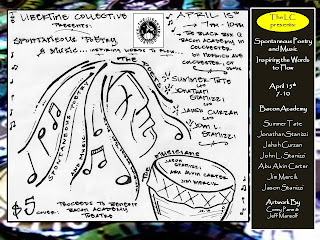 LIBERTINE COLLECTIVE
PRESENTS:
SPONTANEOUS POETRY
& MUSIC... INSPIRING WORDS TO FLOW...
APRIL 15TH
7PM - 10PM
THE BLACK BOX @
BACON ACADEMY IN
COLCHESTER
NORWICH AVE
COLCHESTER, CT
THE POETS
SUMMER TATE
JONATHAN
STANIZZI
JAHSH CURZAN
JOHN L.
STANIZZI
SPONTANEOUS POETRY
AND MUSIC
THE MUSICIANS
JASON
STANIZZI
ABU ALVIN CARTER
JIM MERCIK
$5
COVER.
PROCEEDS TO BENEFIT
BACON ACADEMY
THEATRE
The LC
presents:
Spontaneous Poetry
and Music
Inspiring the Words
to Flow
April 15th
7-10
Bacon Academy
Summer Tate
Jonathan Stanizzi
Jahsh Curzan
John L. Stanizzi
Abu Alvin Carter
Jim Mercik
Jason Stanizzi
Artwork By
Jeff Manzolf